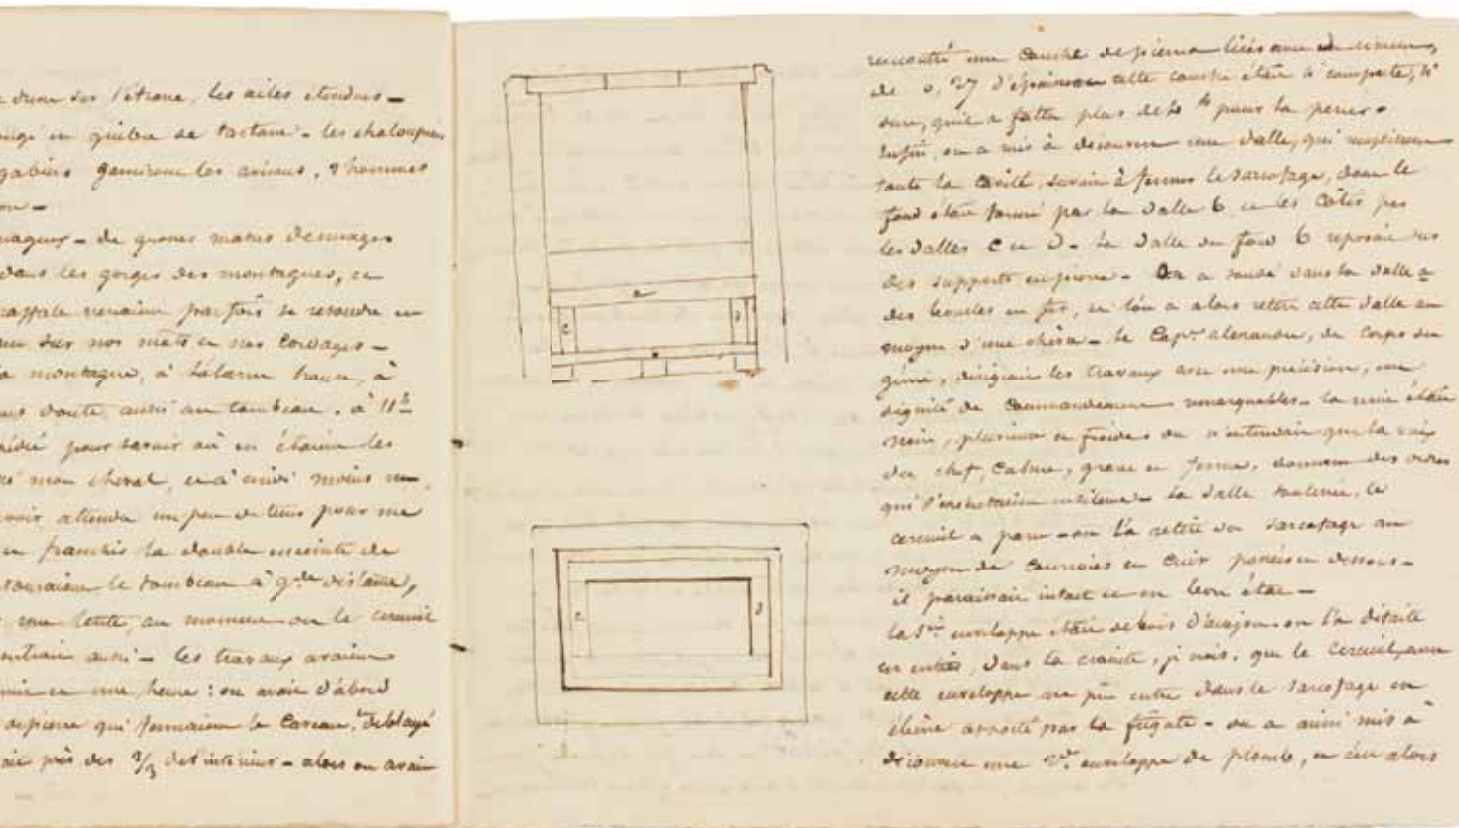 dune sur l'étrave, les ailes étendues –
en guibre de tartane – les chaloupes
gabiers garniront les avirons, 9 hommes
– de grosses masses de nuages
dans les gorges des montagnes, et
raffale venaient parfois se resoudre en
sur nos mats et nos cordages –
la montagne, à l'alarm house, à
doute, aussi au tombeau. à 11h
pour savoir où en étaient les
mon cheval, et à minuit moins un
avoir attendu un peu de tems pour me
franchis la double enceinte de
le tombeau à gde distance,
une tente, au moment où le cercueil
aussi – les travaux avaient
minuit et une heure : on avait d'abord
de pierre qui fermaient le caveau, & déblayé
près des 2/3 de l'intérieur – alors on avait
a
c
d
b
c
d
rencontré une couche de pierres liées avec du ciment,
de 0,27 d'épaisseur cette couche était si compacte, si
dure, qu'il a fallu plus de 4h pour la percer –
Enfin, on a mis à découvert une dalle, qui remplissant
toute la cavité, servait à fermer le sarcofage, dont le
fond était formé par la dalle b et les côtés par
les dalles c et d – la dalle du fond b reposait sur
des supports en pierre – On a soudé dans la dalle a
des boucles en fer, et l'on a alors retiré cette dalle au
moyen d'une chèvre – le Capne alexander, du corps du
génie, dirigeait les travaux avec une précision, une
dignité de commandement remarquables – la nuit était
noire, pluvieuse et froide : on n'entendait que la voix
du chef, calme, grave et ferme, donnant des ordres
qui s'exécutaient en silence – la dalle soulevée, le
cercueil a paru – on l'a retiré du sarcofage au
moyen de courroies en cuir passées en dessous –
il paraissait intact et en bon état –
la 1ère enveloppe était de bois d'acajou – on l'a défaite
en entier, dans la crainte, je crois, que le cercueil, avec
cette enveloppe ne put entrer dans le sarcofage en
ébène apporté par la frégate – on a ainsi mis à
découvert une 2de enveloppe de plomb, et c'est alors